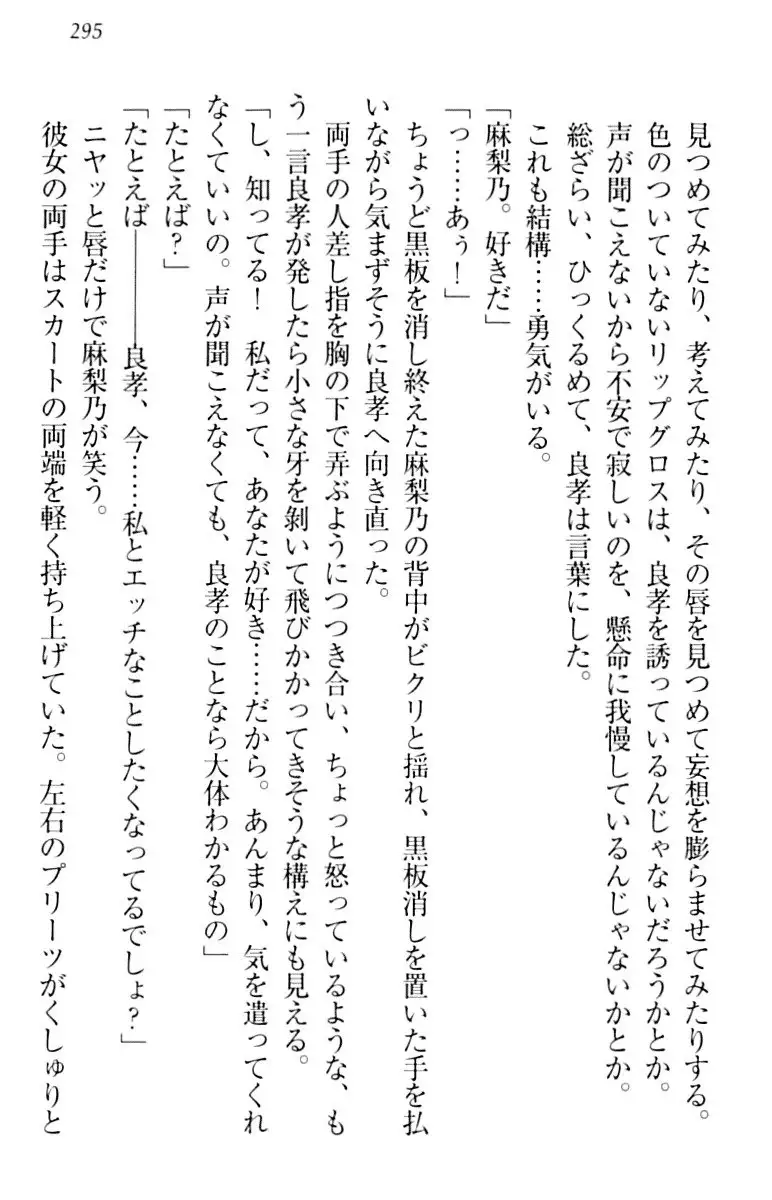 295
見つめてみたり、考えてみたり、その唇を見つめて妄想を膨らませてみたりする。
色のついていないリップグロスは、良孝を誘っているんじゃないだろうかとか。
声が聞こえないから不安で寂しいのを、懸命に我慢しているんじゃないかとか。
総ざらい、ひっくるめて、良孝は言葉にした。
これも結構……勇気がいる。
「麻梨乃。好きだ」
「っ……あぅ！」
ちょうど黒板を消し終えた麻梨乃の背中がビクリと揺れ、黒板消しを置いた手を払
いながら気まずそうに良孝へ向き直った。
両手の人差し指を胸の下で弄ぶようにつつき合い、ちょっと怒っているような、も
う一言良孝が発したら小さな牙を剝いて飛びかかってきそうな構えにも見える。
「し、知ってる！　私だって、あなたが好き……だから。あんまり、気を遣ってくれ
なくていいの。声が聞こえなくても、良孝のことなら大体わかるもの」
「たとえば？」
「たとえば――――良孝、今……私とエッチなことしたくなってるでしょ？」
ニヤッと唇だけで麻梨乃が笑う。
彼女の両手はスカートの両端を軽く持ち上げていた。左右のプリーツがくしゅりと